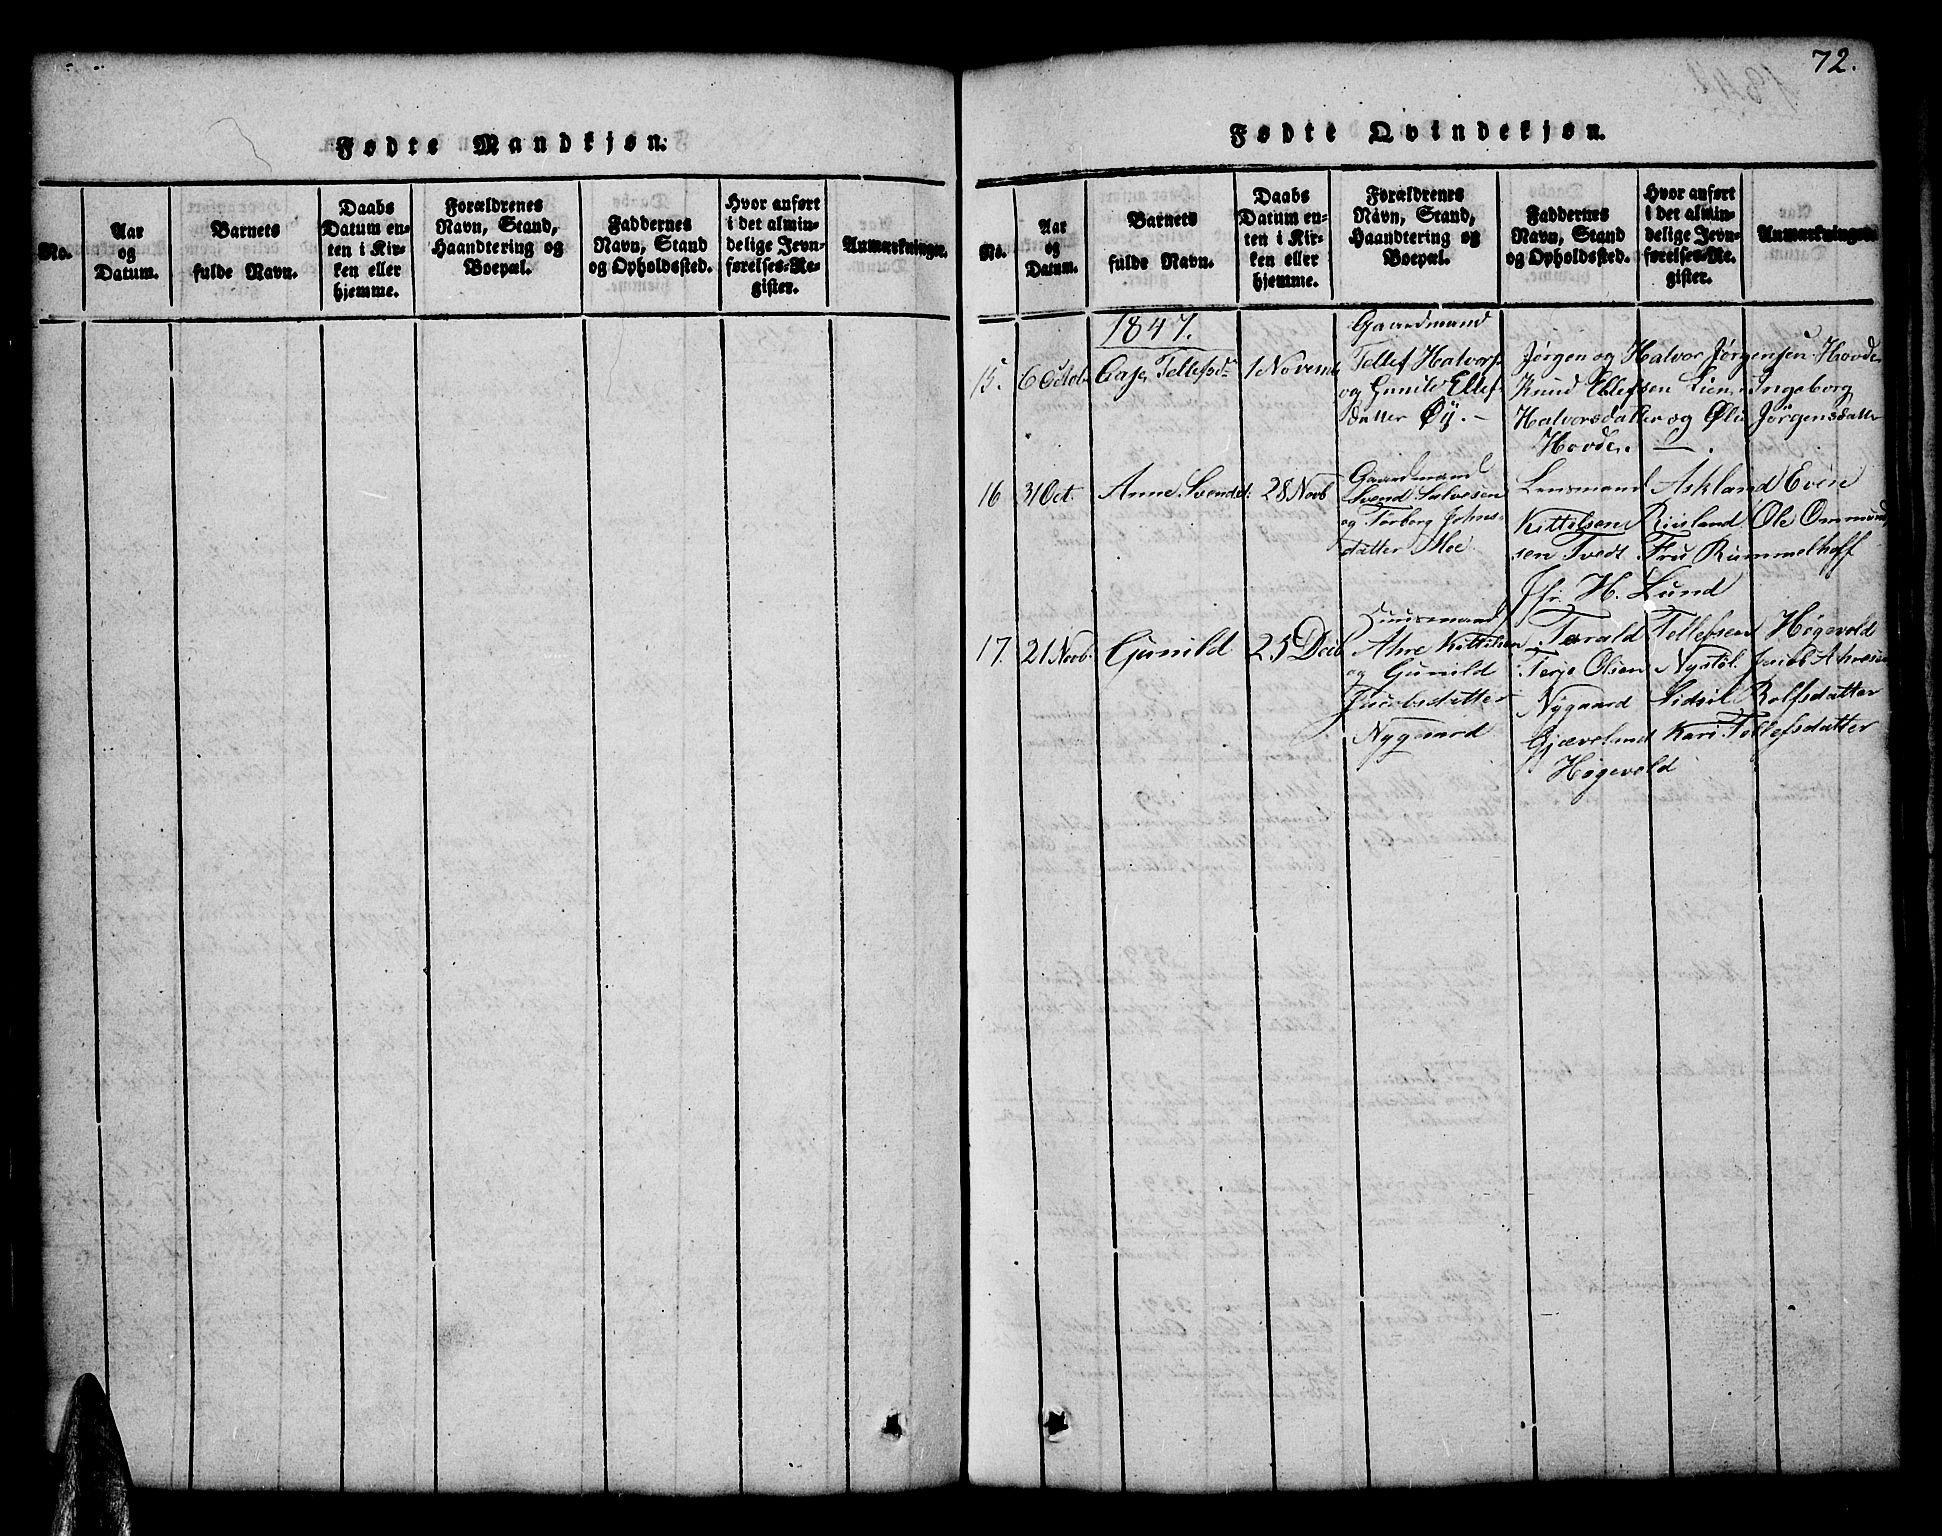 72.
Fødte Mandkjøn.
No.
Aar og Datum.
Barnets fulde Navn.
Daabs Datum enten i Kirken eller hjemme.
Forældrenes Navn, Stand, Haandtering og Boepæl.
Faddernes Navn, Stand og Opholdssted.
Hvor anført i det almindelige Jevnførelses-Register.
Anmærkninger.
Fødte Qvindekjøn.
No.
Aar og Datum.
Barnets fulde Navn.
Daabs Datum enten i Kirken eller hjemme.
Forældrenes Navn, Stand, Haandtering og Boepæl.
Faddernes Navn, Stand og Opholdssted.
Hvor anført i det almindelige Jevnførelses-Register.
Anmærkninger.
1847.
15. 6 Octob. Tellefsd. 1 Novemb
Gaardmand
Tellef Halvors.
og Gunild Ellefs
datter Øÿ. –
Jørgen og Halvor Jørgensen Hovde
Knud Ellefsen Lien, Ingeborg
Halvorsdatter og Jørgensdatter
Hovde. —
16. 31 Oct. Anne Svendsd: 28 Novb
Gaardmand
Svend Salvesen
og Torborg Johns-
datter Moe
Lensmand Askland Even
Kittilsen Riisland Ole Ommund
sen Tvedt. Fru Rummelhoff
Jfr. H. Lund
17. 21 Novb. Gunild 25 Deb
Huusmand
Kittilsen
og Gunild
Jacobsdatter
Nygaard
Tarald Tellefsen Høgevold
Terje Olsen Nystøl Jacob
Nygaard Sidsil Rolfsdatter
Gjæveland Kari Tellefsdatter
Høgevold